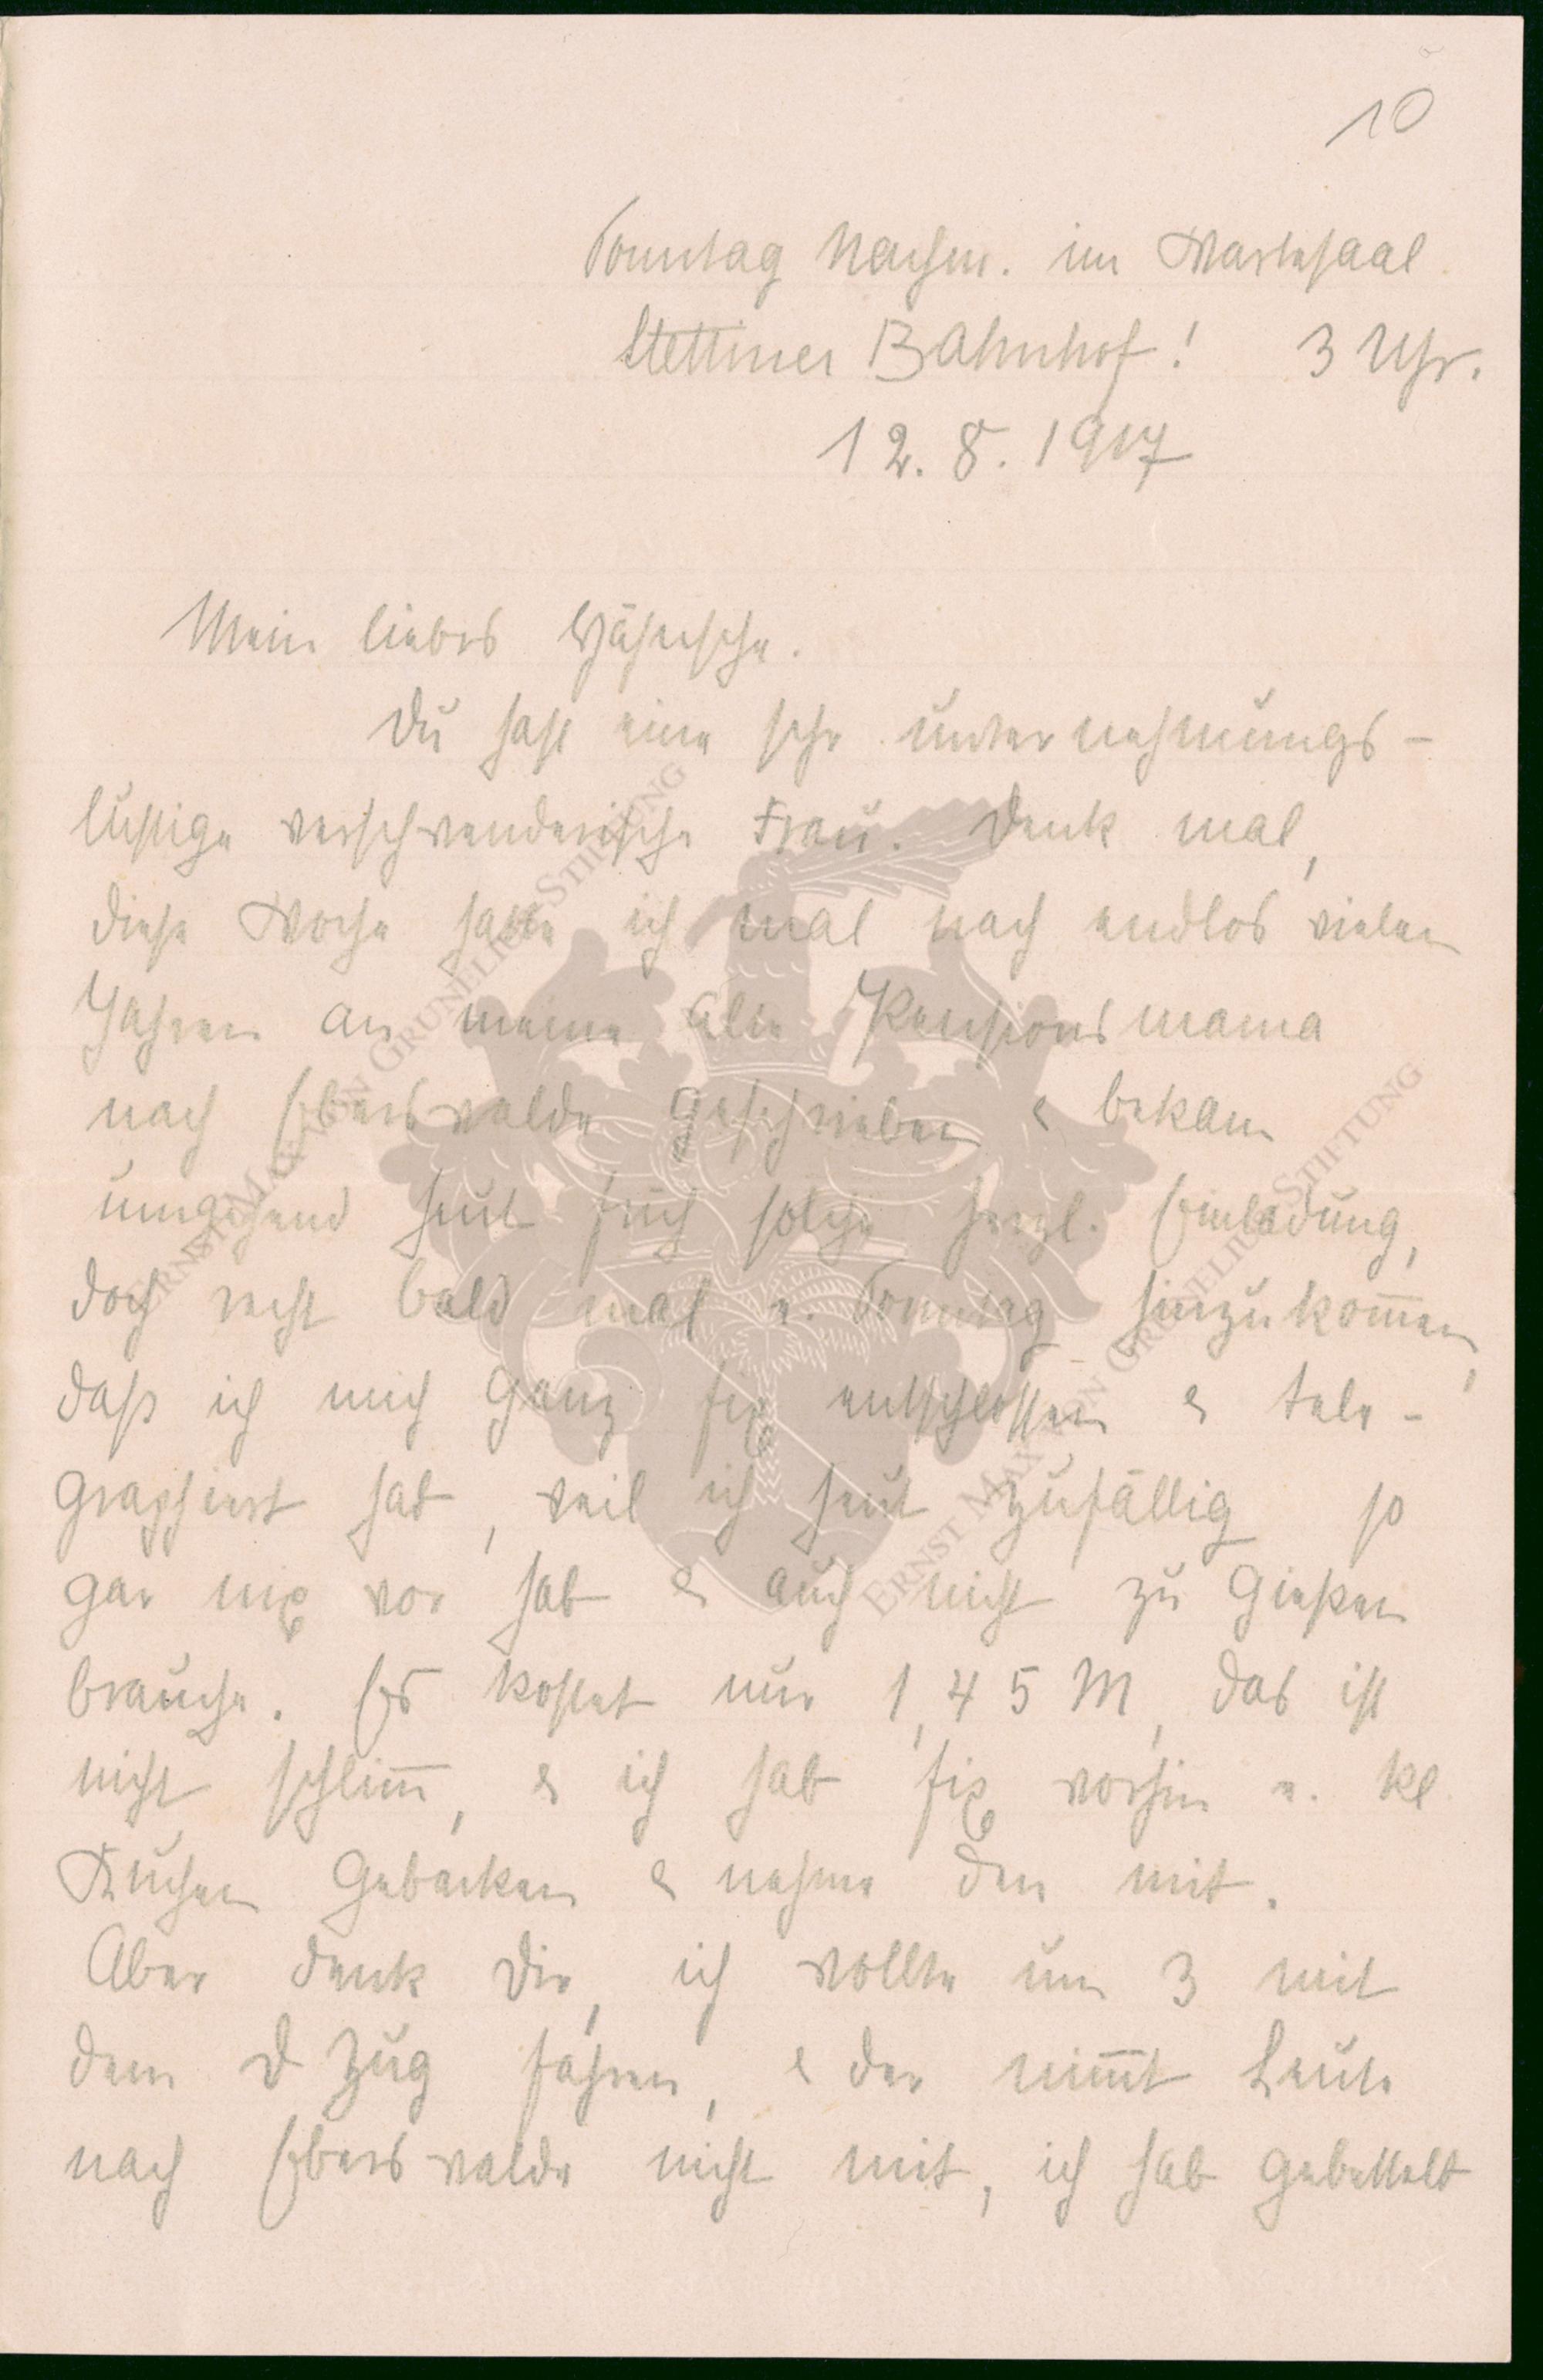 10
Sonntag Nachm. im Wartesaal
Stettiner Bahnhof! 3 Uhr.
12. 8. 1917
Mein liebes
Du hast eine sehr unternehmungs-
lustige verschwenderische Frau. Denk mal,
diese Woche hatte ich mal nach endlos vielen
Jahren an meine alte Pensionsmama
nach Eberswalde geschrieben & bekam
umgehend heut früh solche herzl. Einladung,
doch recht bald mal e. Sonntag hinzukom̅en,
daß ich mich ganz fix entschlossen & tele-
graphiert hab, weil ich heut zufällig so
gar nix vor hab & auch nicht zu gießen
brauche. Es kostet nur 1,45 M, das ist
nicht schlim̅, & ich hab fix vorhin e. kl.
Kuchen gebacken & nehme den mit.
Aber denk Dir, ich wollte um 3 mit
dem D Zug fahren, & der nim̅t Leute
nach Eberswalde nicht mit, ich hab gebettelt
ERNST MAX VON GRUNELIUS-STIFTUNG
ERNST MAX VON GRUNELIUS-STIFTUNG